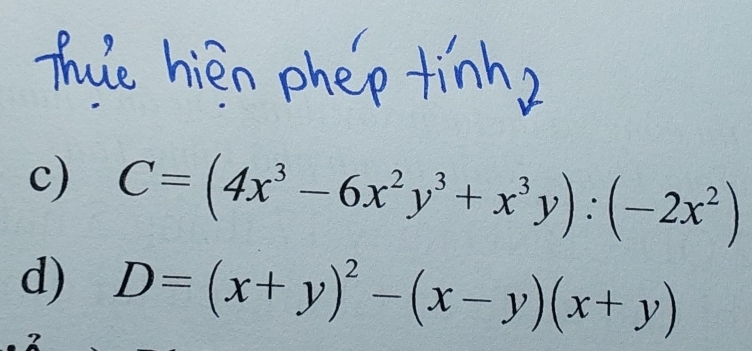 Thực hiện phép tính
c) C = (4x³ – 6x²y³ + x³y) : (–2x²)
d) D = (x + y)² – (x – y)(x + y)